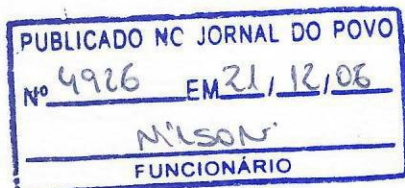 PUBLICADO NO JORNAL DO POVO
Nº 4926 EM 21/12/06
NILSON
FUNCIONÁRIO